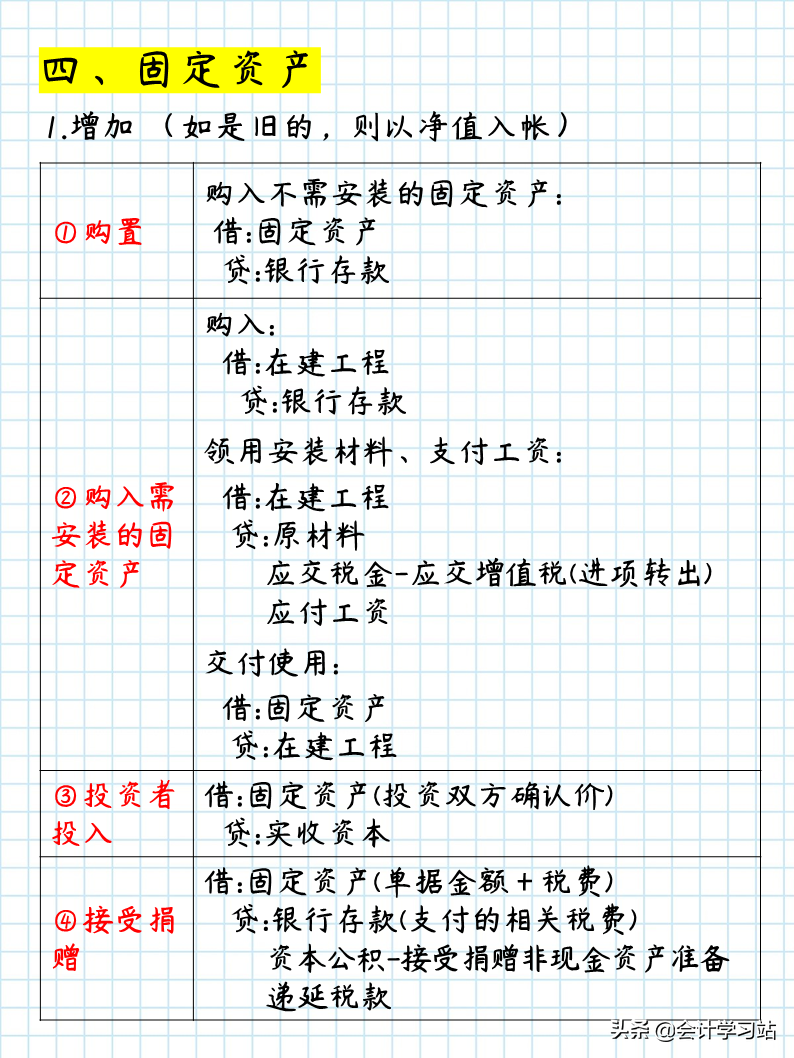 四、固定资产
1.增加（如是旧的，则以净值入帐）
①购置
购入不需安装的固定资产:
借:固定资产
贷:银行存款
②购入需
安装的固
定资产
购入:
借:在建工程
贷:银行存款
领用安装材料、支付工资:
借:在建工程
贷:原材料
应交税金-应交增值税(进项转出)
应付工资
交付使用:
借:固定资产
贷:在建工程
③投资者
投入
借:固定资产(投资双方确认价)
贷:实收资本
④接受捐
赠
借:固定资产(单据金额+税费)
贷:银行存款(支付的相关税费)
资本公积-接受捐赠非现金资产准备
递延税款
头条 @会计学习站